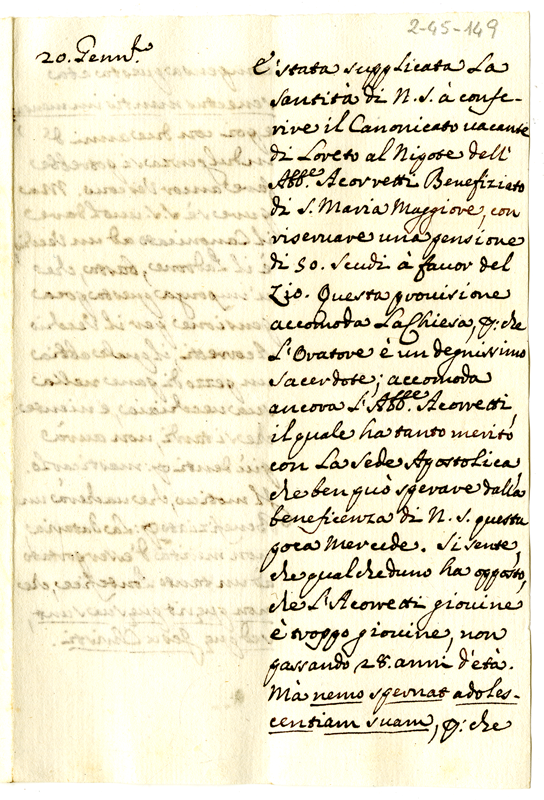 2-45-149
20. Genn.º
E' stata supplicata La
Santità di N. S. à confe-
rire il Canonicato vacante
di Loreto al Nipote dell'
Abbe. Acorretti Benefiziato
di S. Maria Maggiore, con
riservare una pensione
di 50. scudi à favor del
Zio. Questa provisione
accomoda La Chiesa, p: che
L'Oratore è un degnissimo
Sacerdote; accomoda
ancora L'Abbe. Acorretti
il quale ha tanto merito
con La Sede Apostolica
che ben può sperare dalla
beneficenza di N. S. questa
poca Mercede. Si sente,
che qualcheduno ha opposto,
che L'Acorretti giovine
è troppo giovine, non
passando 28. anni d'età.
Mà nemo spernat adoles-
centiam suam, p: che